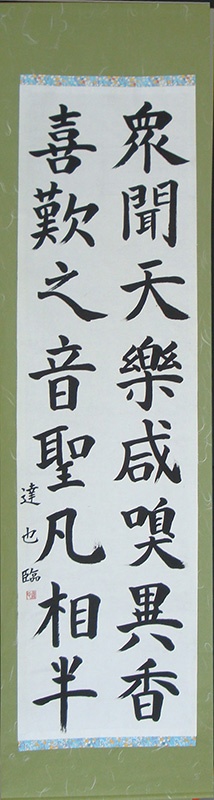 衆聞天樂咸嗅異香
喜歎之音聖凡相半
達也臨